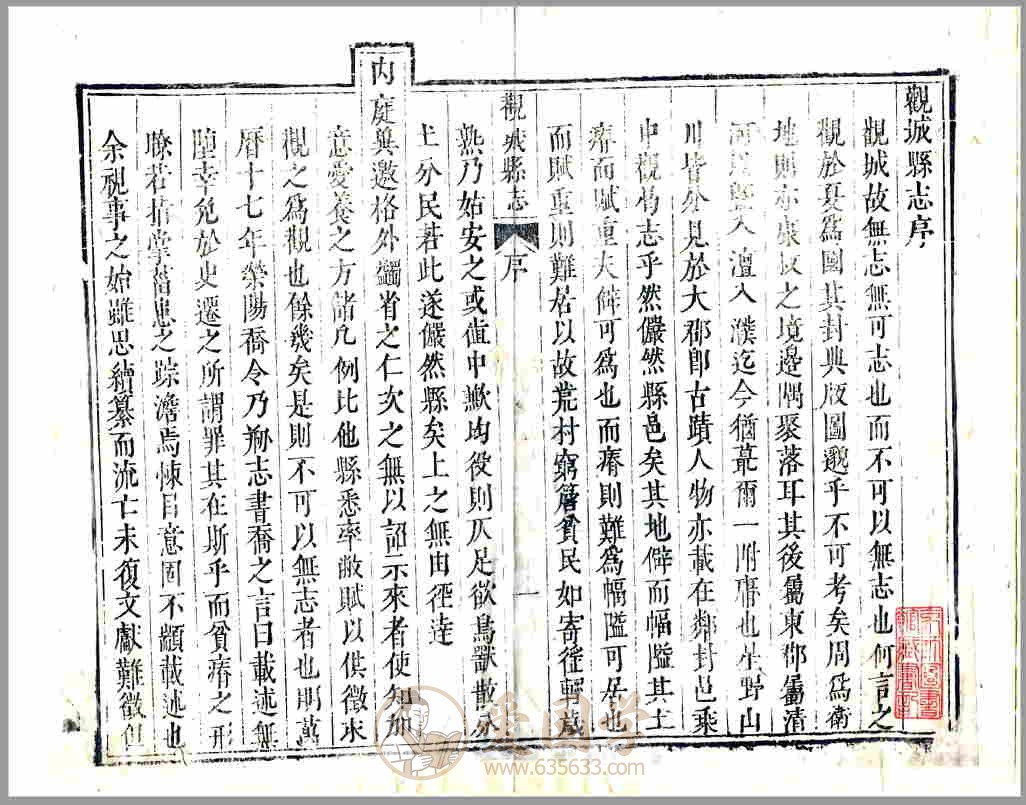 觀城縣志序
觀城故無志無可志也而不可以無志也何言之
觀於夏爲國其封典版圖邈乎不可考矣周爲衛
地則亦康叔之境邊隅聚落耳其後屬東郡屬清
河旣入澶入濮迄今猶蕞爾一附庸也星野山
川皆分見於大郡卽古蹟人物亦載在鄰封邑乘
中觀何志乎然儼然縣邑矣其地僻而幅隘其土
瘠而賦重夫僻可爲也而瘠則難爲幅隘可居也
而賦重則難居以故荒村窮簷貧民如寄徑輕蔑
觀城縣志 序 一
熟乃姑安之或値中歉均役則仄足欲鳥獸散矣
土分民若此遂儼然縣矣上之無由徑達
內庭與邀格外蠲省之仁次之無以詔示來者使知加
意愛養之方儲凡例比他縣悉率敝賦以供徵求
觀之爲觀也餘幾矣是則不可以無志者也明萬
曆十七年滎陽喬令乃刱志書喬之言曰載述無
墮幸免於史遷之所謂罪其在斯乎而貧瘠之形
瞭若指掌舊患之踪澹焉悚目意固不顓載述也
余視事之始雖思續纂而流亡未復文獻難徵但
www.635633.com